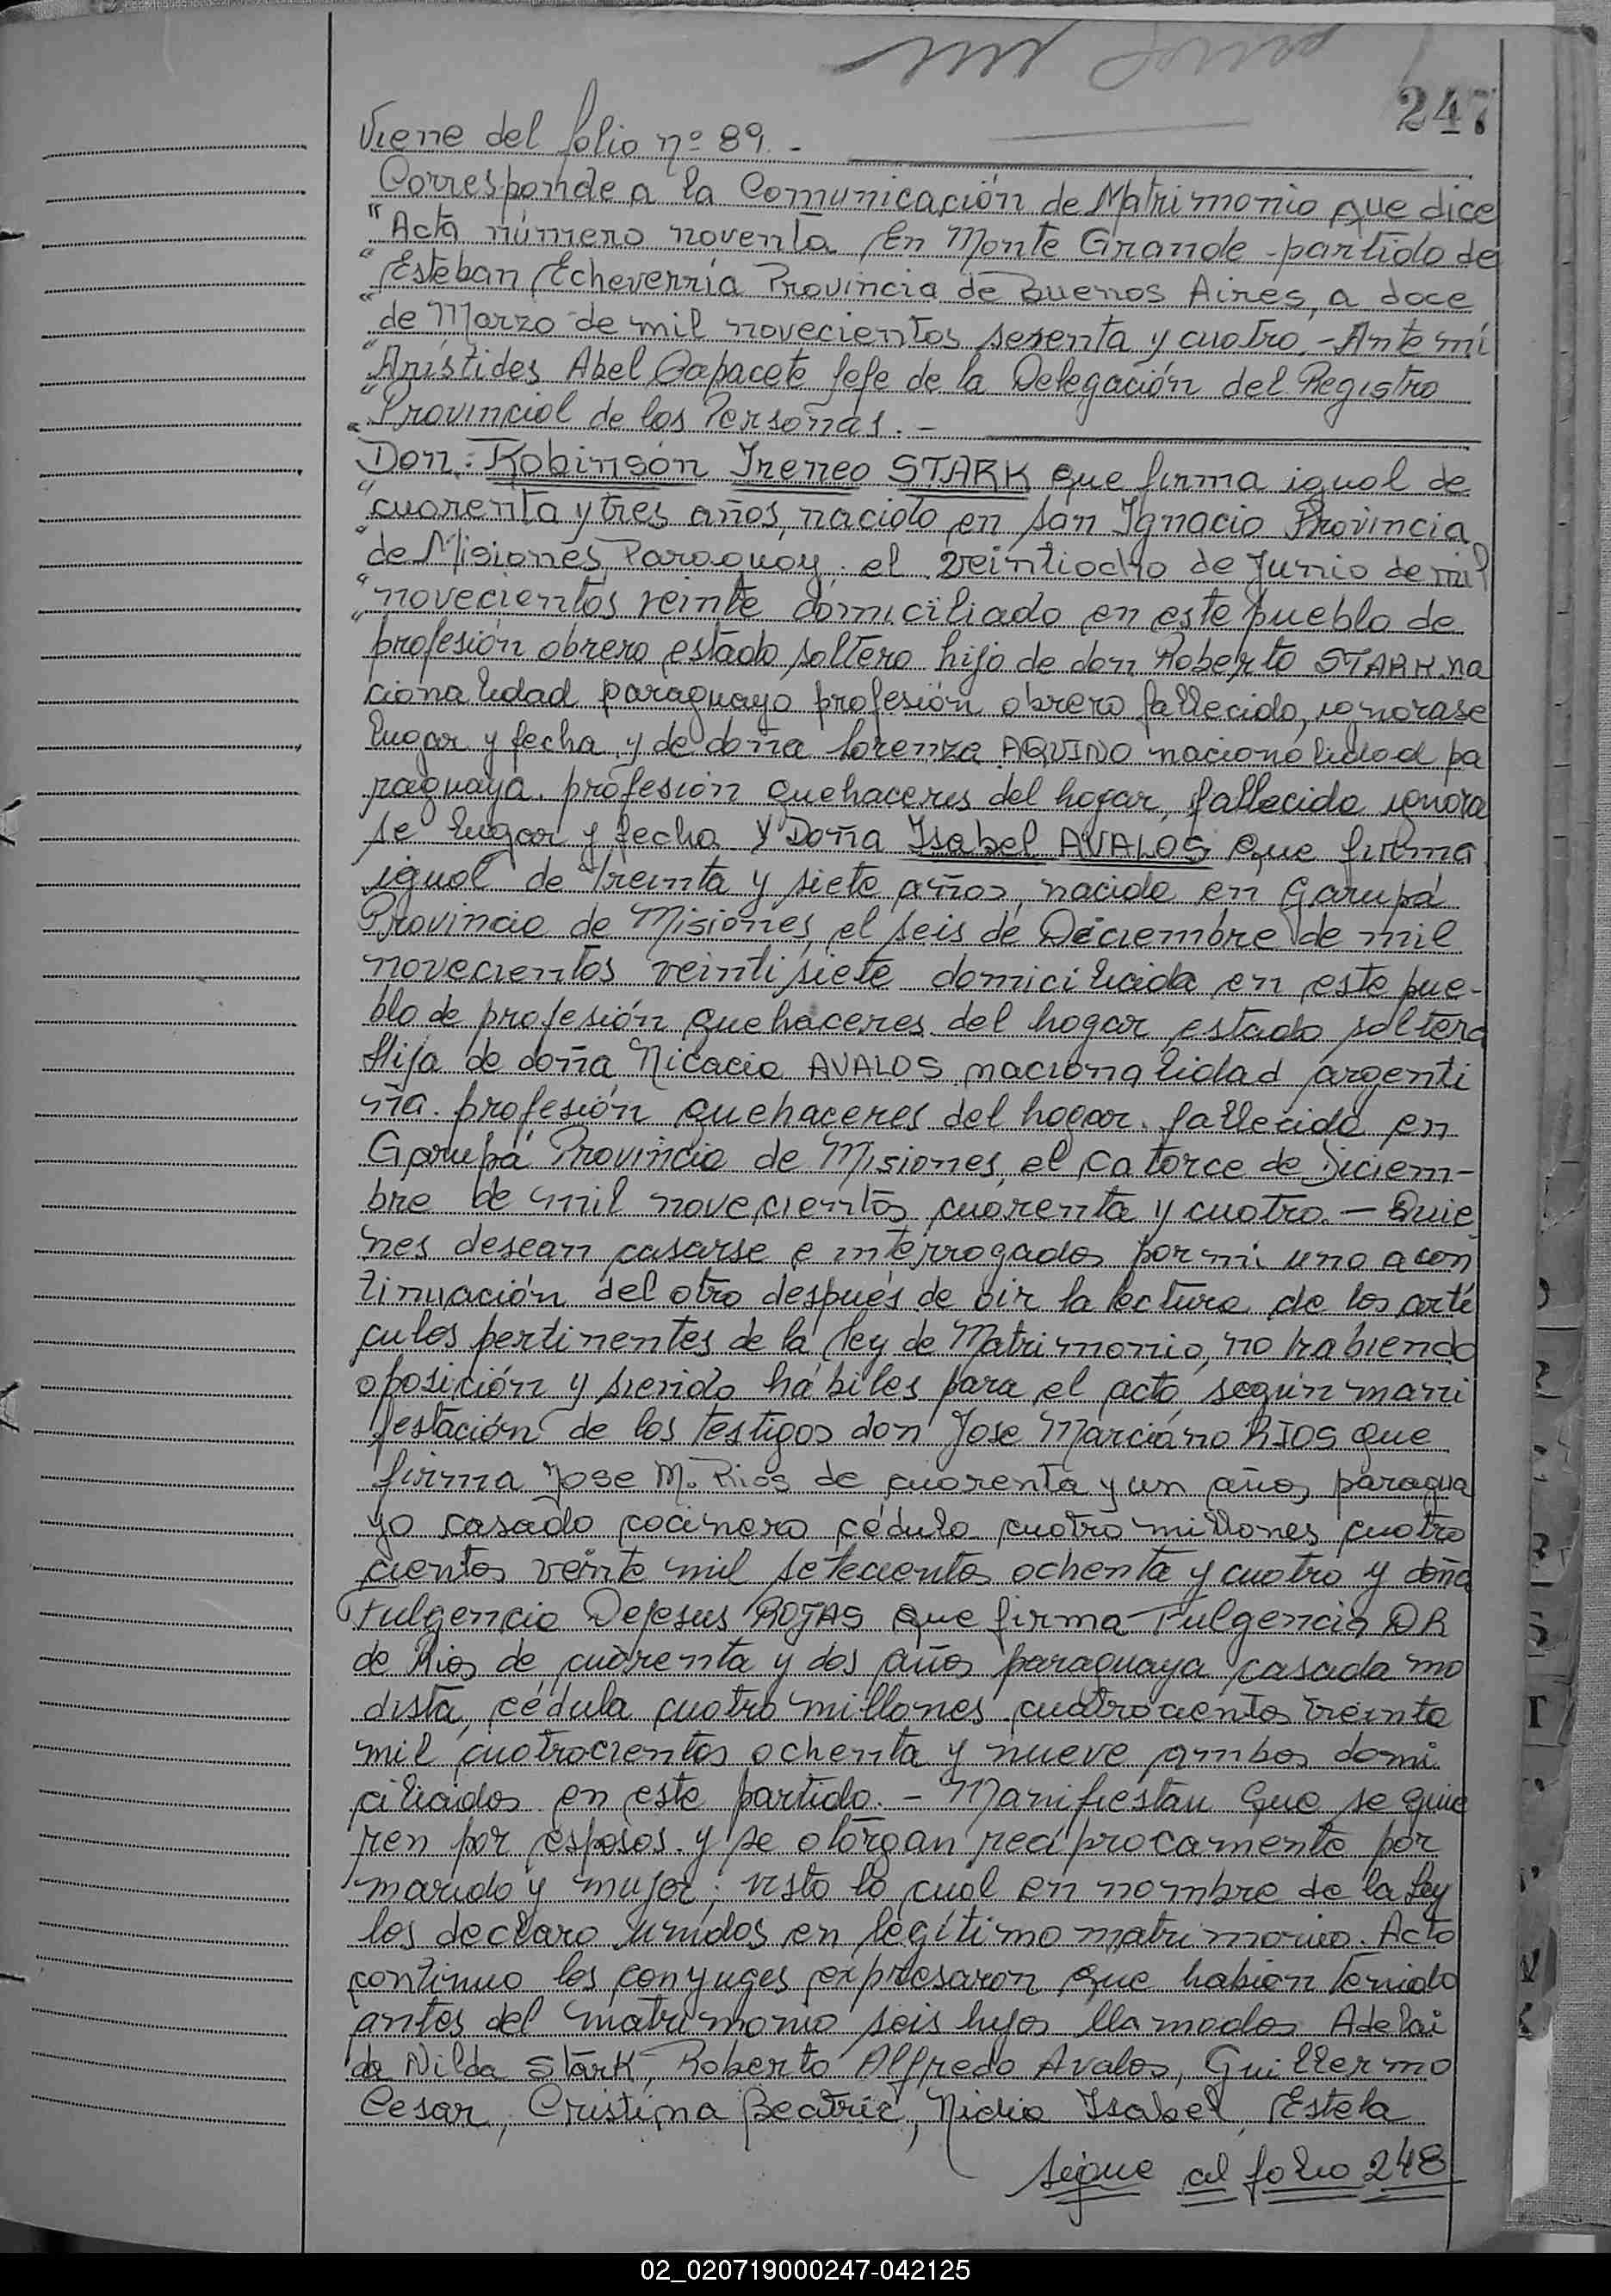 247
Viene del folio nº 89. -
Corresponde a la Comunicación de Matrimonio que dice
"Acta número noventa. En Monte Grande - partido de
"Esteban Echeverría Provincia de Buenos Aires, a doce
"de Marzo de mil novecientos sesenta y cuatro. - Ante mí
"Arístides Abel Capacete Jefe de la Delegación del Registro
"Provincial de los Personas. -
Don: Robinsón Ireneo STARK que firma igual de
"cuarenta y tres años, nacido en San Ignacio Provincia
"de Misiones Paraguay, el veintiocho de Junio de mil
"novecientos veinte domiciliado en este pueblo de
"profesión obrero estado soltero hijo de don Roberto STARK na
cionalidad paraguayo profesión obrero fallecido, ignorase
lugar y fecha y de doña Lorenza AQUINO nacionalidad pa
raguaya. profesión quehaceres del hogar, fallecida ignora
se lugar y fecha. Y Doña Isabel AVALOS que firma
igual de treinta y siete años, nacida en Garupá
Provincia de Misiones, el seis de Diciembre de mil
novecientos veintisiete domiciliada en este pue-
blo de profesión quehaceres del hogar estado soltera
Hija de doña Nicacia AVALOS nacionalidad argenti
na. profesión quehaceres del hogar. fallecida en
Garupá Provincia de Misiones, el catorce de Diciem-
bre de mil novecientos cuarenta y cuatro. - Quie
nes desean casarse e interrogados por mi uno a con
tinuación del otro después de oir la lectura de los artí
culos pertinentes de la ley de Matrimonio, no habiendo
oposición y siendo hábiles para el acto, según mani
festación de los testigos don Jose Marciano RIOS que
firma Jose M. Rios de cuarenta y un años, paragua
yo casado cocinero cédula cuatro millones cuatro
cientos veinte mil setecientos ochenta y cuatro y doña
Fulgencia Dejesus ROJAS que firma Fulgencia DR
de Rios de cuarenta y dos años paraguaya casada mo
dista, cédula cuatro millones cuatrocientos treinta
mil cuatrocientos ochenta y nueve ambos domi
ciliados en este partido. - Manifiestan que se quie
ren por esposos y se otorgan recíprocamente por
marido y mujer; visto lo cual en nombre de la Ley
los declaro unidos en legítimo matrimonio. Acto
continuo los conyuges expresaron que habian tenido
antes del matrimonio seis hijos llamados Adelai
da Nilda Stark, Roberto Alfredo Avalos, Guillermo
Cesar, Cristina Beatriz, Nidia Isabel, Estela
sigue al folio 248
02_020719000247-042125